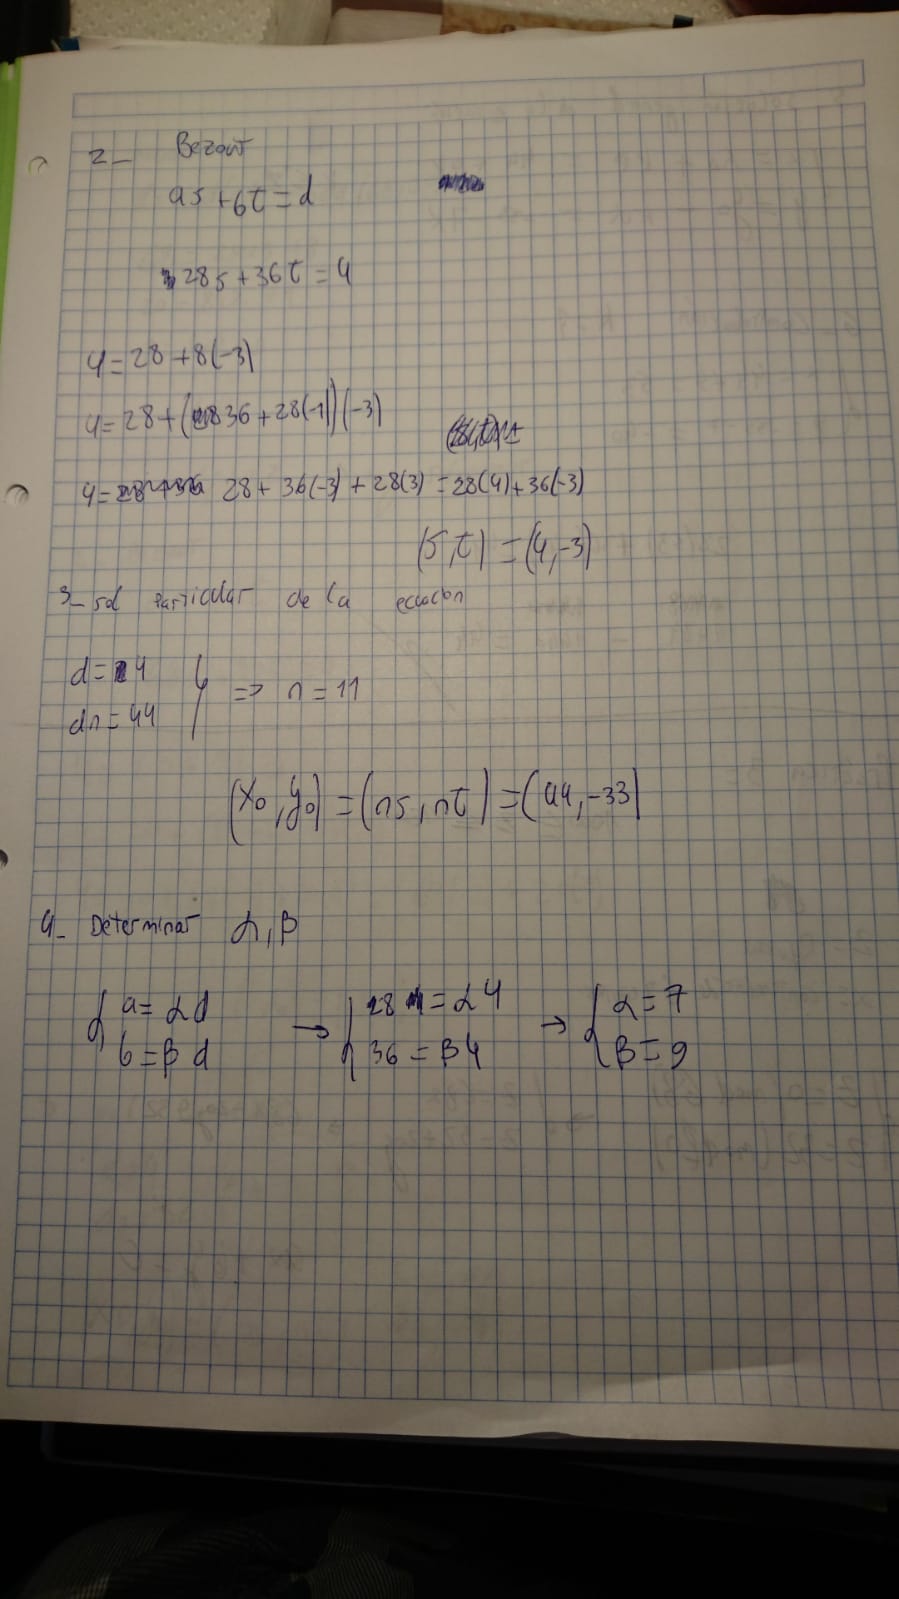 2_ Bezout
as + bt = d
28s + 36t = 4
4 = 28 + 8(-3)
4 = 28 + (36 + 28(-1))(-3)
4 = 28 + 36(-3) + 28(3) = 28(4) + 36(-3)
(s, t) = (4, -3)
3_ sol particular de la ecuacion
d = 4
dn = 44 } => n = 11
(x₀, y₀) = (ns, nt) = (44, -33)
4_ Determinar α, β
{ a = αd → { 28 = α4 → { α = 7
b = βd 36 = β4 β = 9